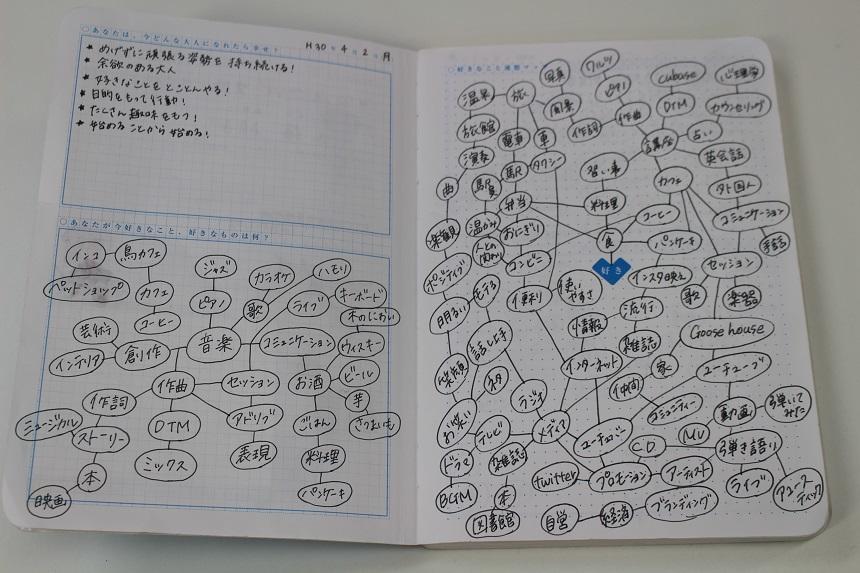 ○あなたは、今どんな大人になれたら幸せ?
H30年4月2日
★ めげずに頑張る姿勢を持ち続ける!
★ 余欲のある大人
★ 好きなことをとことんやる!
★ 目的をもって行動!
★ たくさん趣味をもつ!
★ 始めることから始める!
○あなたが今好きなこと、好きなものは何?
インコ
鳥カフェ
ペットショップ
カフェ
コーヒー
ジャズ
ピアノ
カラオケ
ハモリ
歌
ライブ
キーボード
木のにおい
芸術
インテリア
創作
音楽
コミュニケーション
ウィスキー
作曲
セッション
お酒
ビール
芋
さつまいも
作詞
ミュージカル
ストーリー
DTM
アドリブ
ごはん
ミックス
表現
料理
本
映画
パンケーキ
○好きなこと連想マップ
温泉
旅
写真
ワルツ
ピアノ
cubase
心理学
旅館
風景
DTM
カウンセリング
電車
車
作詞
作曲
講座
占い
演奏
駅
タクシー
習い事
英会話
曲
駅員
カフェ
外国人
弁当
料理
コーヒー
コミュニケーション
楽観
温かみ
おにぎり
食
パンケーキ
手話
人との関わり
コンビニ
好き
インスタ映え
セッション
ポジティブ
モテる
便利
使いやすさ
歌
楽器
明るい
話し上手
情報
流行
Goose house
雑誌
笑顔
ネタ
インターネット
家
ユーチューブ
仲間
お笑い
ラジオ
コミュニティー
動画
弾いてみた
テレビ
メディア
ユーチューバー
CD
MV
弾き語り
ドラマ
雑誌
twitter
プロモーション
アーティスト
ライブ
アコースティック
BGM
本
図書館
自営
経済
ブランディング